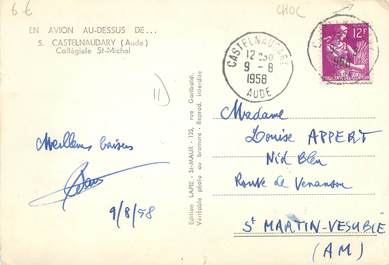 6-6
CHOC
EN AVION AU-DESSUS DE...
5. CASTELNAUDARY (Aude)
Collégiale St-Michel
CASTELNAUDARY
9-8
1958
AUDE
12F
11)
Meilleurs baisers
9/8/58
Edition LAPIE - St-MAUR - 125, rue Garibaldi.
Véritable photo au bromure - Reprod. interdite
Madame
Louise APPERT
Nid Bleu
Route de Venanson
St MARTIN-VESUBIE
(AM)